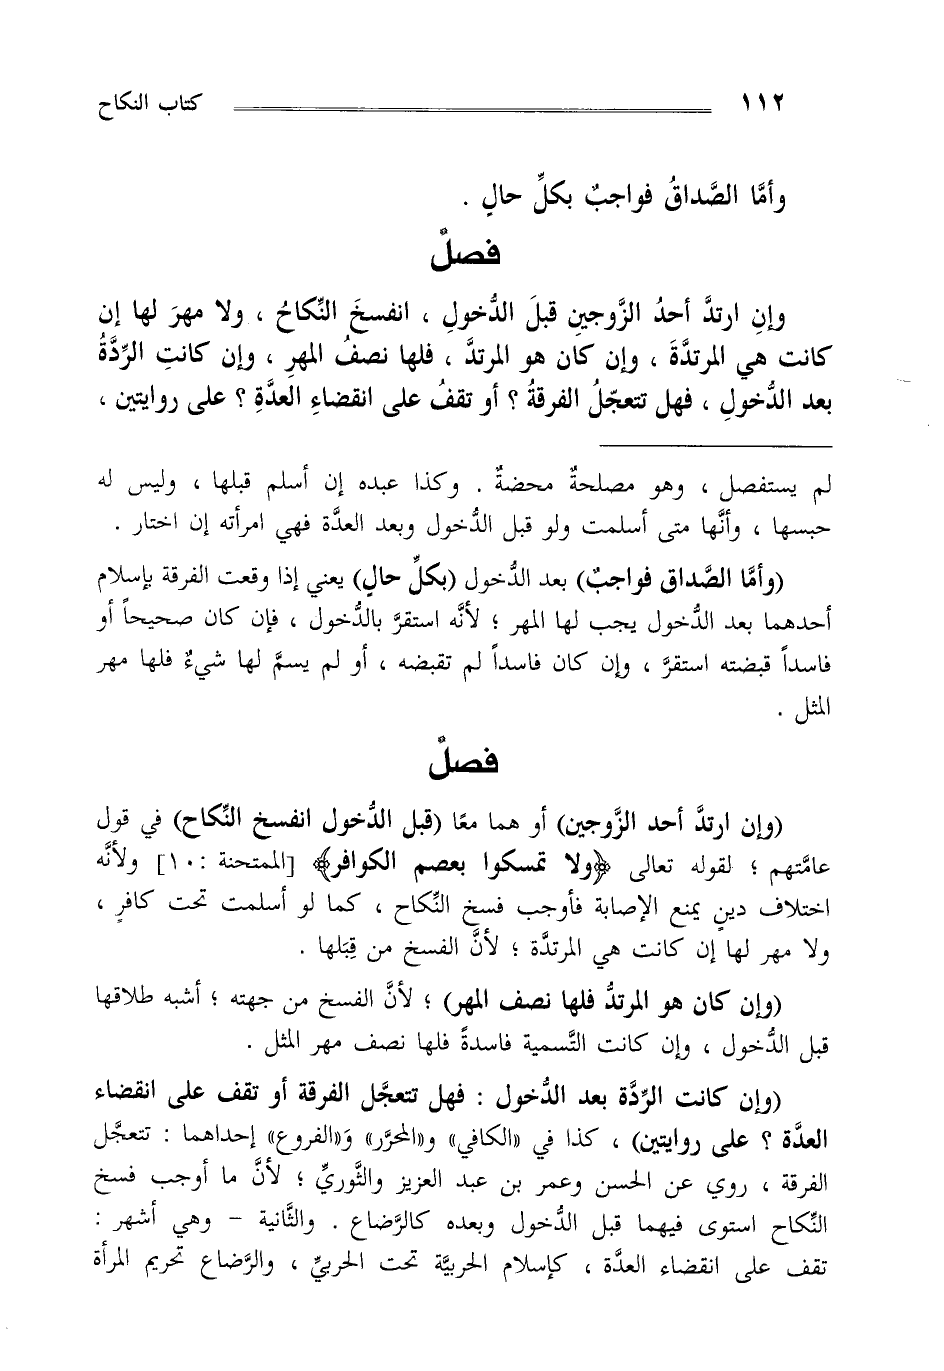 ١١٢ كتاب النكاح
وأمَّا الصَّداقُ فواجبٌ بكلِّ حالٍ .
فصلٌ
وإنِ ارتدَّ أحدُ الزَّوجينِ قبلَ الدُّخولِ ، انفسخَ النِّكاحُ ، ولا مهرَ لها إن
كانت هي المرتدَّةَ ، وإن كان هو المرتدَّ ، فلها نصفُ المهرِ ، وإن كانتِ الرِّدَّةُ
بعد الدُّخولِ ، فهل تتعجّلُ الفرقةُ ؟ أو تقفُ على انقضاءِ العدَّةِ ؟ على روايتين ،
لم يستفصل ، وهو مصلحةٌ محضةٌ . وكذا عبده إن أسلم قبلها ، وليس له
حبسها ، وأنَّها متى أسلمت ولو قبل الدُّخول وبعد العدَّة فهي امرأته إن اختار .
(وأمَّا الصَّداق فواجبٌ) بعد الدُّخول (بكلِّ حالٍ) يعني إذا وقعت الفرقة بإسلام
أحدهما بعد الدُّخول يجب لها المهر ؛ لأنَّه استقرَّ بالدُّخول ، فإن كان صحيحاً أو
فاسداً قبضته استقرَّ ، وإن كان فاسداً لم تقبضه ، أو لم يسمَّ لها شيءٌ فلها مهر
المثل .
فصلٌ
(وإن ارتدَّ أحد الزَّوجين) أو هما معًا (قبل الدُّخول انفسخ النِّكاح) في قول
عامَّتهم ؛ لقوله تعالى ﴿ولا تمسكوا بعصم الكوافر﴾ [الممتحنة :١٠] ولأنَّه
اختلاف دينٍ يمنع الإصابة فأوجب فسخ النِّكاح ، كما لو أسلمت تحت كافرٍ ،
ولا مهر لها إن كانت هي المرتدَّة ؛ لأنَّ الفسخ من قِبَلها .
(وإن كان هو المرتدُّ فلها نصف المهر) ؛ لأنَّ الفسخ من جهته ؛ أشبه طلاقها
قبل الدُّخول ، وإن كانت التَّسمية فاسدةً فلها نصف مهر المثل .
(وإن كانت الرِّدَّة بعد الدُّخول : فهل تتعجَّل الفرقة أو تقف على انقضاء
العدَّة ؟ على روايتين) ، كذا في «الكافي» و«المحرَّر» وَ«الفروع» إحداهما : تتعجَّل
الفرقة ، روي عن الحسن وعمر بن عبد العزيز والثَّوريِّ ؛ لأنَّ ما أوجب فسخ
النِّكاح استوى فيهما قبل الدُّخول وبعده كالرَّضاع . والثَّانية – وهي أشهر :
تقف على انقضاء العدَّة ، كإسلام الحربيَّة تحت الحربيِّ ، والرَّضاع تحريم المرأة